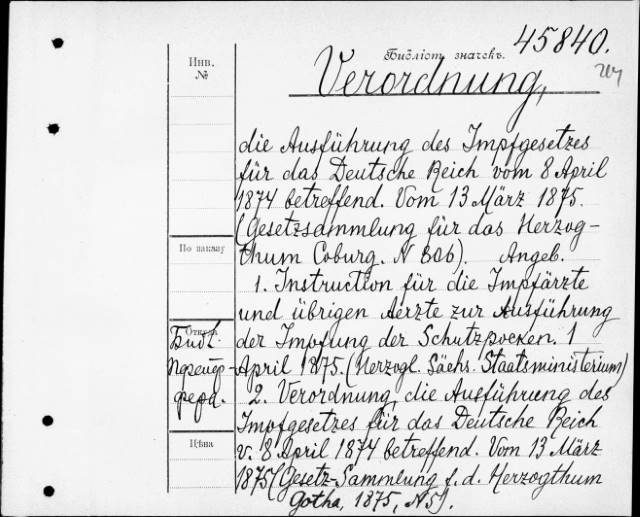 Библіот. значекъ. 45840.
Инв.
№
Verordnung,
die Ausführung des Impfgesetzes
für das Deutsche Reich vom 8 April
1874 betreffend. Vom 13 März 1875.
(Gesetzsammlung für das Herzog-
thum Coburg. N 806). Angeb.
По заказу
1. Instruction für die Impfärzte
und übrigen Aerzte zur Ausführung
Откуда
Библ.
der Impfung der Schutzpocken. 1
April 1875. (Herzogl. Sächs. Staatsministerium)
2. Verordnung, die Ausführung des
Impfgesetzes für das Deutsche Reich
Цѣна
v. 8 April 1874 betreffend. Vom 13 März
1875 (Gesetz-Sammlung f. d. Herzogthum
Gotha, 1875, N 5).